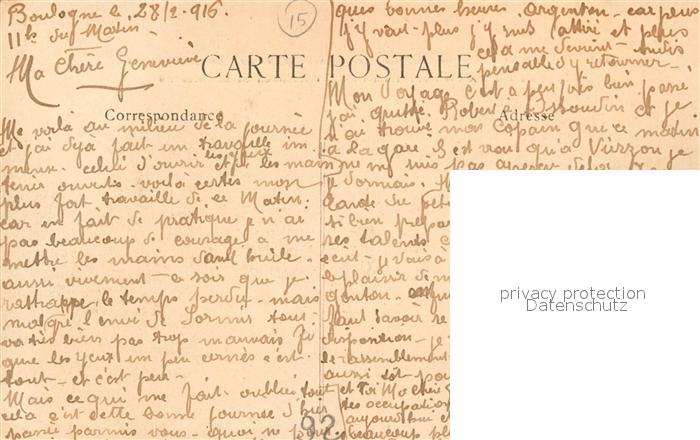 Boulogne le, 28/2 - 916.
11 h du Matin -
Ma Chère Geneviève
15
CARTE POSTALE
Correspondance
Adresse
Me voilà au milieu de la journée
et j'ai déja fait un travaille im
mense. celui d'ouvrir les yeux et les mains
tenir ouverts. voilà certes mon
plus fort travaille de ce Matin.
car en fait de pratique je n'ai
pas beaucoup de courage a me
mettre les mains dans l'huile.
aussi vivement ce soir que je
rattrappe le temps perdu. mais
malgré l'envi de dormir tout
va très bien pas trop mauvais
que les yeux un peu cernés c'est
tout - et c'est peu -
Mais ce qui me fait oublier tout
cela c'est cette bonne journée d'hier
passée parmis vous - quoi ne
ques bonnes heures. Argenton. car plus
j'y vais - plus j'y suis attiré et plus
cela me devient - indis
pensable d'y retourner -
Mon voyage c'est a peu près bien passé
j'ai quitté Robert a Issoudun et je
n'ai trouvé mon copain que ce matin
a la gare. Il est vrai qu'a Vierzon je
ne me suis pas
je dormais.
si bien
ses talents
cent - je vais à
le plaisir de
genton.
faut savoir se
disposition - je
le rassemblement
aussi
et Toi Ma chère
tes occupations
aujourd'hui
beaucoup
92
privacy protection
Datenschutz